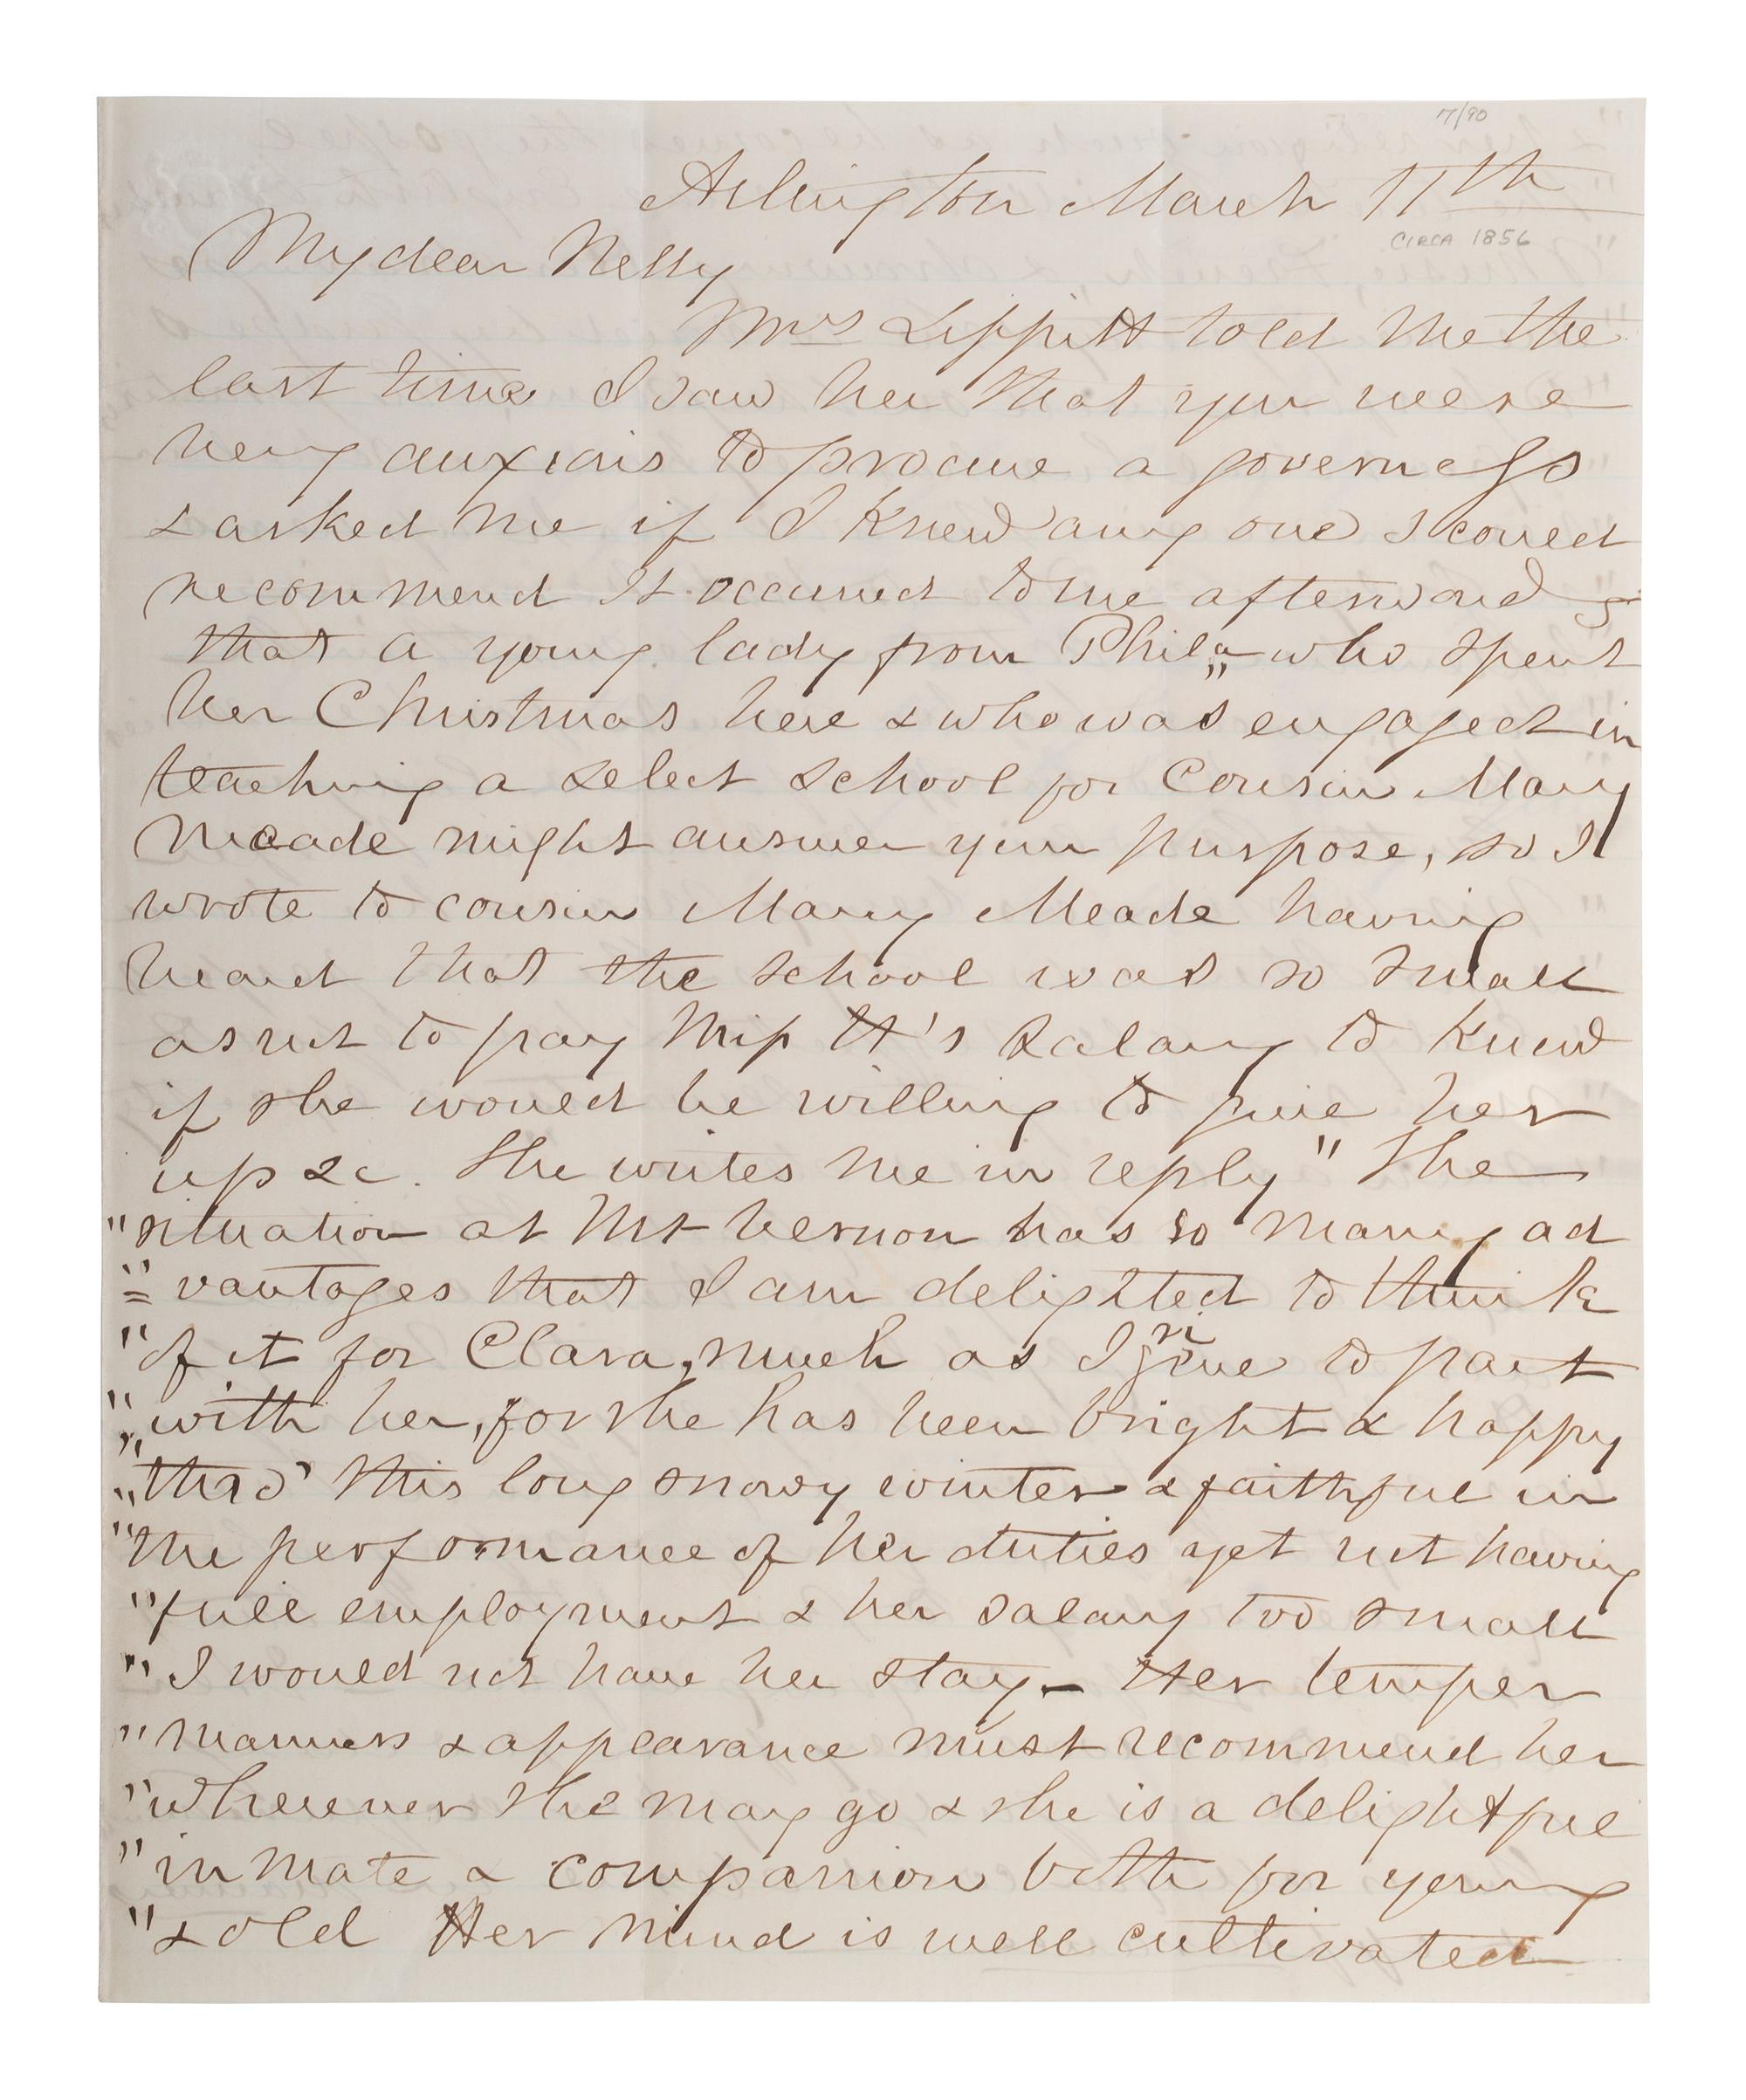 7/90
Arlington March 11th
CIRCA 1856
My dear Nelly
Mrs Lippitt told me the
last time I saw her that you were
very anxious to procure a governess
& asked me if I knew any one I could
recommend It occurred to me afterwards
that a young lady from Phila who spent
her Christmas here & who was engaged in
teaching a select school for Cousin Mary
Meade might answer your purpose, so I
wrote to cousin Mary Meade having
heard that the school was so small
as not to pay Miss H's salary to know
if she would be willing to give her
up &c. She writes me in reply " The
"situation at Mt Vernon has so many ad
"= vantages that I am delighted to think
"of it for Clara, much as I grieve to part
"with her, for she has been bright & happy
"thro' this long snowy winter & faithful in
"the performance of her duties yet not having
"full employment & her salary too small
"I would not have her stay - Her temper
"manners & appearance must recommend her
"wherever she may go & she is a delightful
"inmate & companion both for young
"& old Her mind is well cultivated